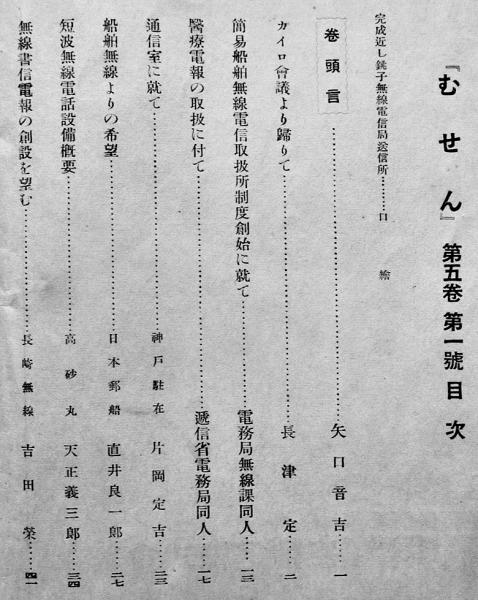 『むせん』 第五卷 第一號 目次
完成近し銚子無線電信局送信所………口繪
卷頭言………矢口音吉……一
カイロ會議より歸りて………長津定……二
簡易船舶無線電信取扱所制度創始に就て………電務局無線課同人……一三
醫療電報の取扱に付て………遞信省電務局同人……一七
通信室に就て………神戸駐在 片岡定吉……二三
船舶無線よりの希望………日本郵船 直井良一郎……二七
短波無線電話設備概要………高砂丸 天正義三郎……三四
無線書信電報の創設を望む………長崎無線 吉田榮……四一